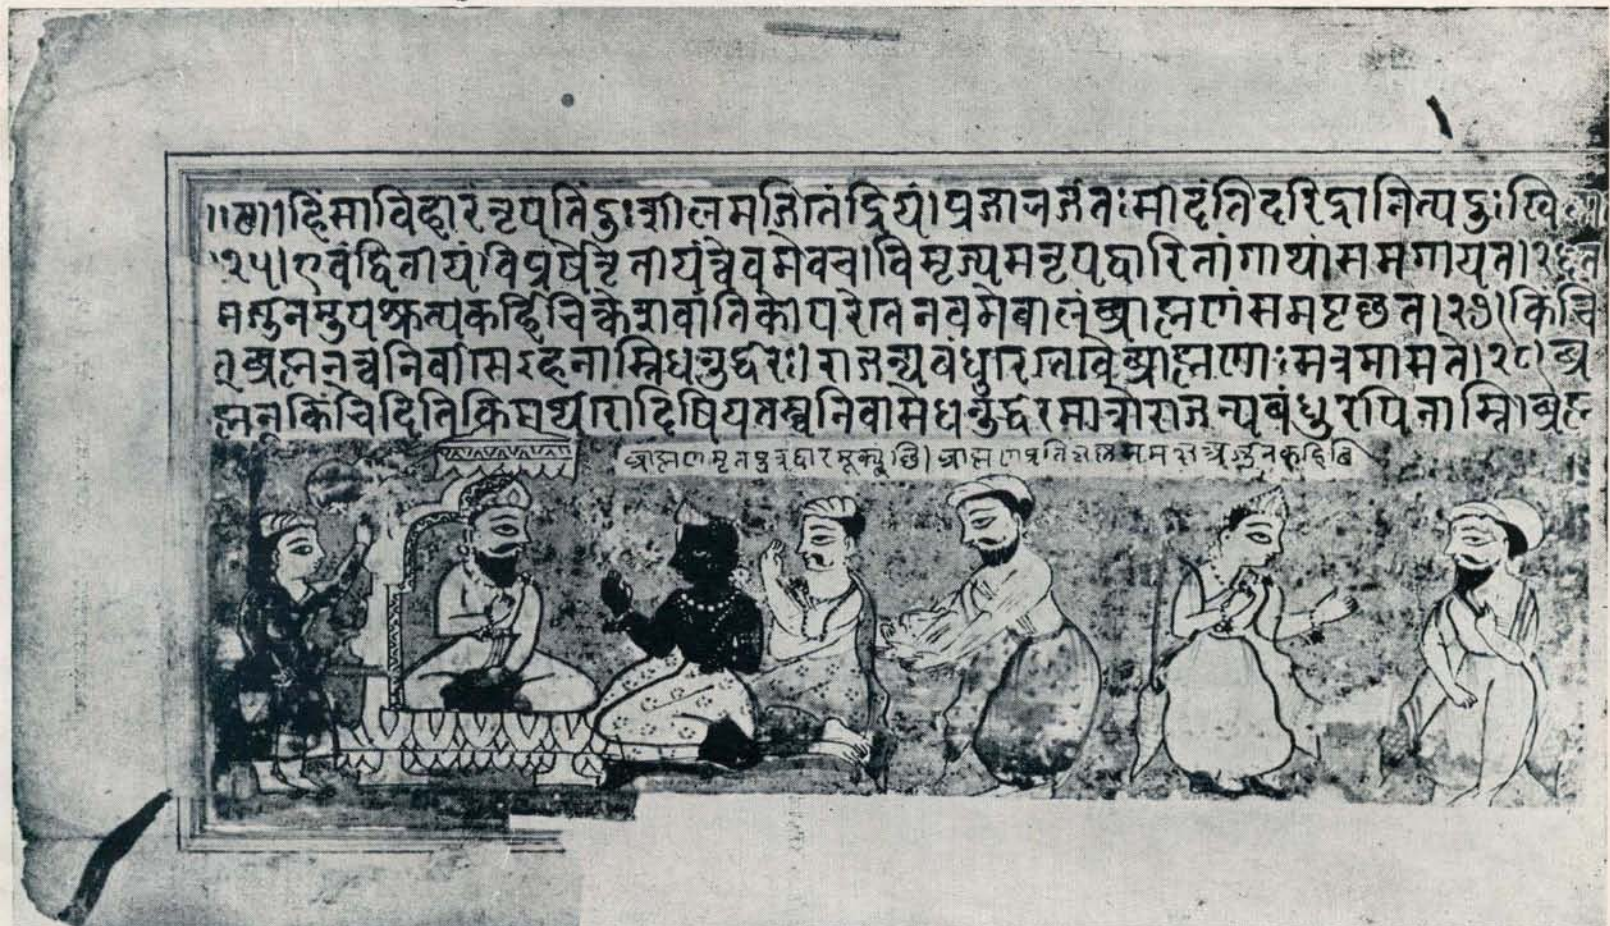 ॥छ॥।हिंसाविहारंनृपतिंदुःशीलमजितेंद्रियं।प्रजानजंतःसीदंतिदरिद्रानित्यदुःखि
२५।एवंद्वितीयंविप्रर्षेतृतीयंत्वेवमेवच।विसृज्यमनृपद्वारितांगाथांसमगायत।२६त
मर्जुनमुपश्रुत्यकर्हिचित्केशवांतिके।परेतेनवमेबालेब्राह्मणंसमपृछत।२७।किंचि
द्ब्रह्मनत्वनिवासेइहनास्तिधनुर्द्धरः।राजन्यबंधुरेतेवैब्राह्मणाःसत्रमासते।२८।ब्र
ह्मनकिंचिदितिकिमर्थंरोदिषियतस्त्वनिवासेधनुर्द्धरमात्रोराजन्यबंधुरपिनास्ति।ब्रह्म
ब्राह्मणमृतपुत्रद्वारमूक्युछि।ब्राह्मणप्रति अर्जुनकहिछि